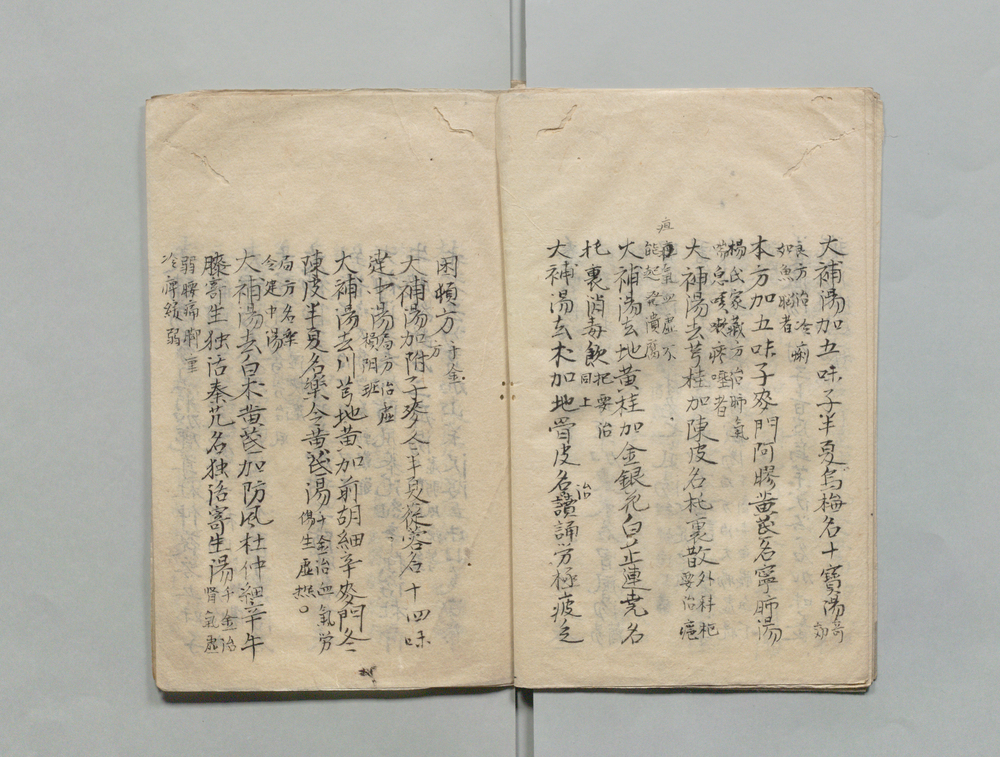 大補湯加五味子半夏烏梅名十寶湯奇効
良方治冷痢
如魚脳者
本方加五味子麥門阿膠黄芪名寧肺湯
楊氏家藏方治肺氣
喘急咳嗽痰唾者
大補湯去芎桂加陳皮名托裏散外科杷
要治瘡
疽氣血虚不
能起発潰腐
大補湯去地黄桂加金銀花白芷連堯名
托裏消毒飲把要治
同上
大補湯去木加地骨皮名讀誦治労極疲乏
困頓方千金
方
大補湯加附子麥今半夏蓯蓉名十四味
建中湯局方治虚
損陰斑
大補湯去川芎地黄加前胡細辛麥門冬
陳皮半夏名樂令黄芪湯千金治血氣労
傷生虚熱〇
局方名樂
令建中湯
大補湯去白朮黄芪加防風杜仲細辛牛
膝寄生独活秦艽名独活寄生湯千金治
腎氣虚
弱腰痛脚
冷痺緩弱